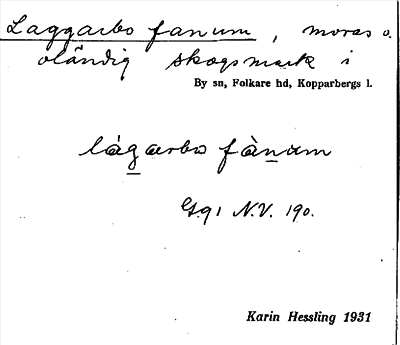 Laggarbo fanum, moras o.
oländig skogsmark i
By sn, Folkare hd, Kopparbergs l.
lágarbo fànum
Gg 1 N.V. 190.
Karin Hessling 1931